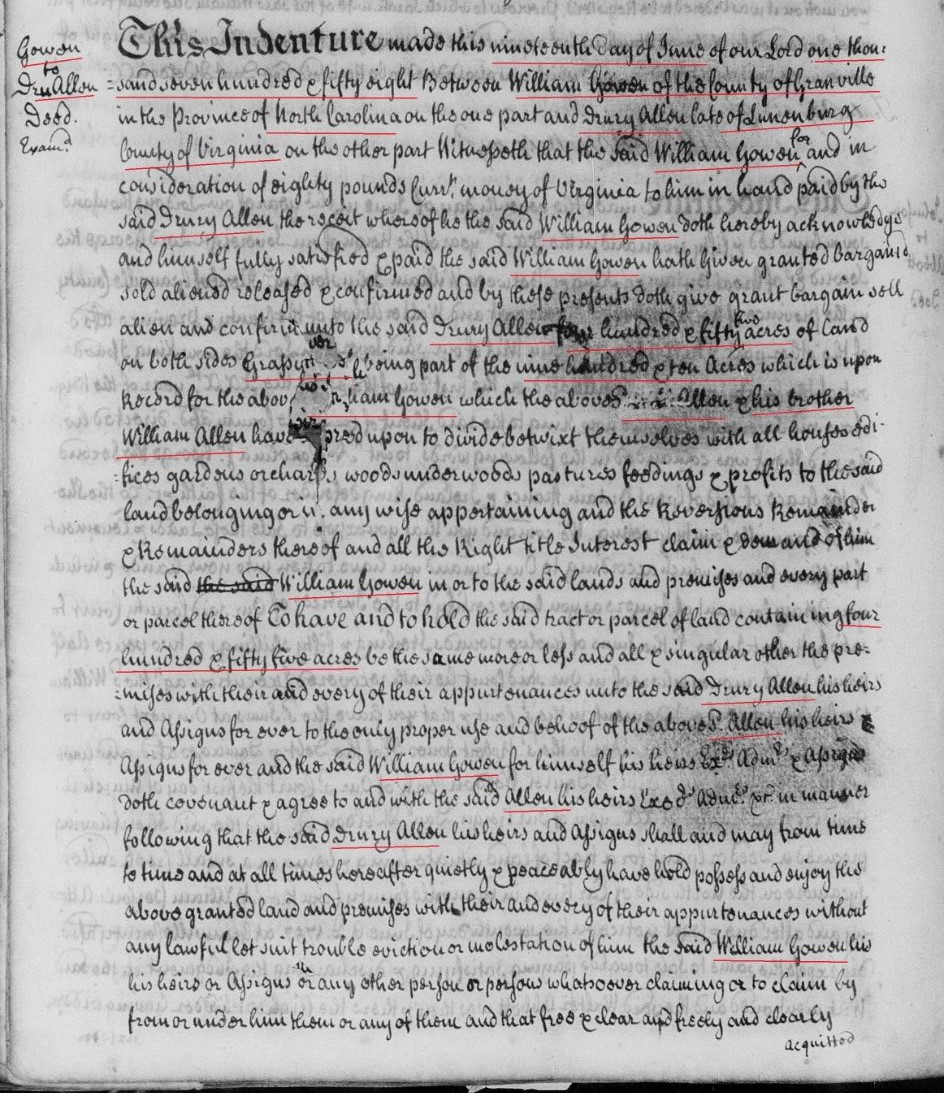 Gowen
to
Dru Allen
Deed.
Exam.d
This Indenture made this nineteenth Day of June of our Lord one thou:
=sand seven hundred & fifty eight Between William Gowen of the County of Granville
in the Province of North Carolina on the one part and Drury Allen late of Lunenburg
County of Virginia on the other part Witnesseth that the said William Gowen for and in
consideration of eighty pounds Curr.t money of Virginia to him in hand paid by the
said Drury Allen the receit whereof he the said William Gowen doth hereby acknowledge
and himself fully satisfied & paid the said William Gowen hath Given granted bargain'd
sold aliened released & confirmed and by these presents doth give grant bargain sell
alien and confirm unto the said Drury Allen four hundred & fifty five acres of land
on both sides Grassy being part of the nine hundred & ten Acres which is upon
Record for the abov William Gowen which the aboves.d Allen & his brother
William Allen have upon to divide betwixt themselves with all houses edi-
:fices gardens orchards woods underwoods pastures feedings & profits to the said
land belonging or in any wise appertaining and the Reversions Remainder
& Remainders thereof and all the Right title Interest claim & demand of him
the said the said William Gowen in or to the said lands and premises and every part
or parcel thereof To have and to hold the said tract or parcel of land containing four
hundred & fifty five acres be the same more or less and all & singular other the pre=
:mises with their and every of their appurtenances unto the said Drury Allen his heirs
and Assigns for ever to the only proper use and behoof of the aboves.d Allen his heirs &
Assigns for ever and the said William Gowen for himself his heirs Exe.rs Adm.rs & Assigns
doth covenant & agree to and with the said Allen his heirs Exe.rs Adm.rs &c in manner
following that the said Drury Allen his heirs and Assigns shall and may from time
to time and at all times hereafter quietly & peaceably have hold possess and enjoy the
above granted land and premises with their and every of their appurtenances without
any lawful let suit trouble eviction or molestation of him the said William Gowen his
his heirs or Assigns or any other person or persons whatsoever claiming or to claim by
from or under him them or any of them and that free & clear and freely and clearly
acquitted